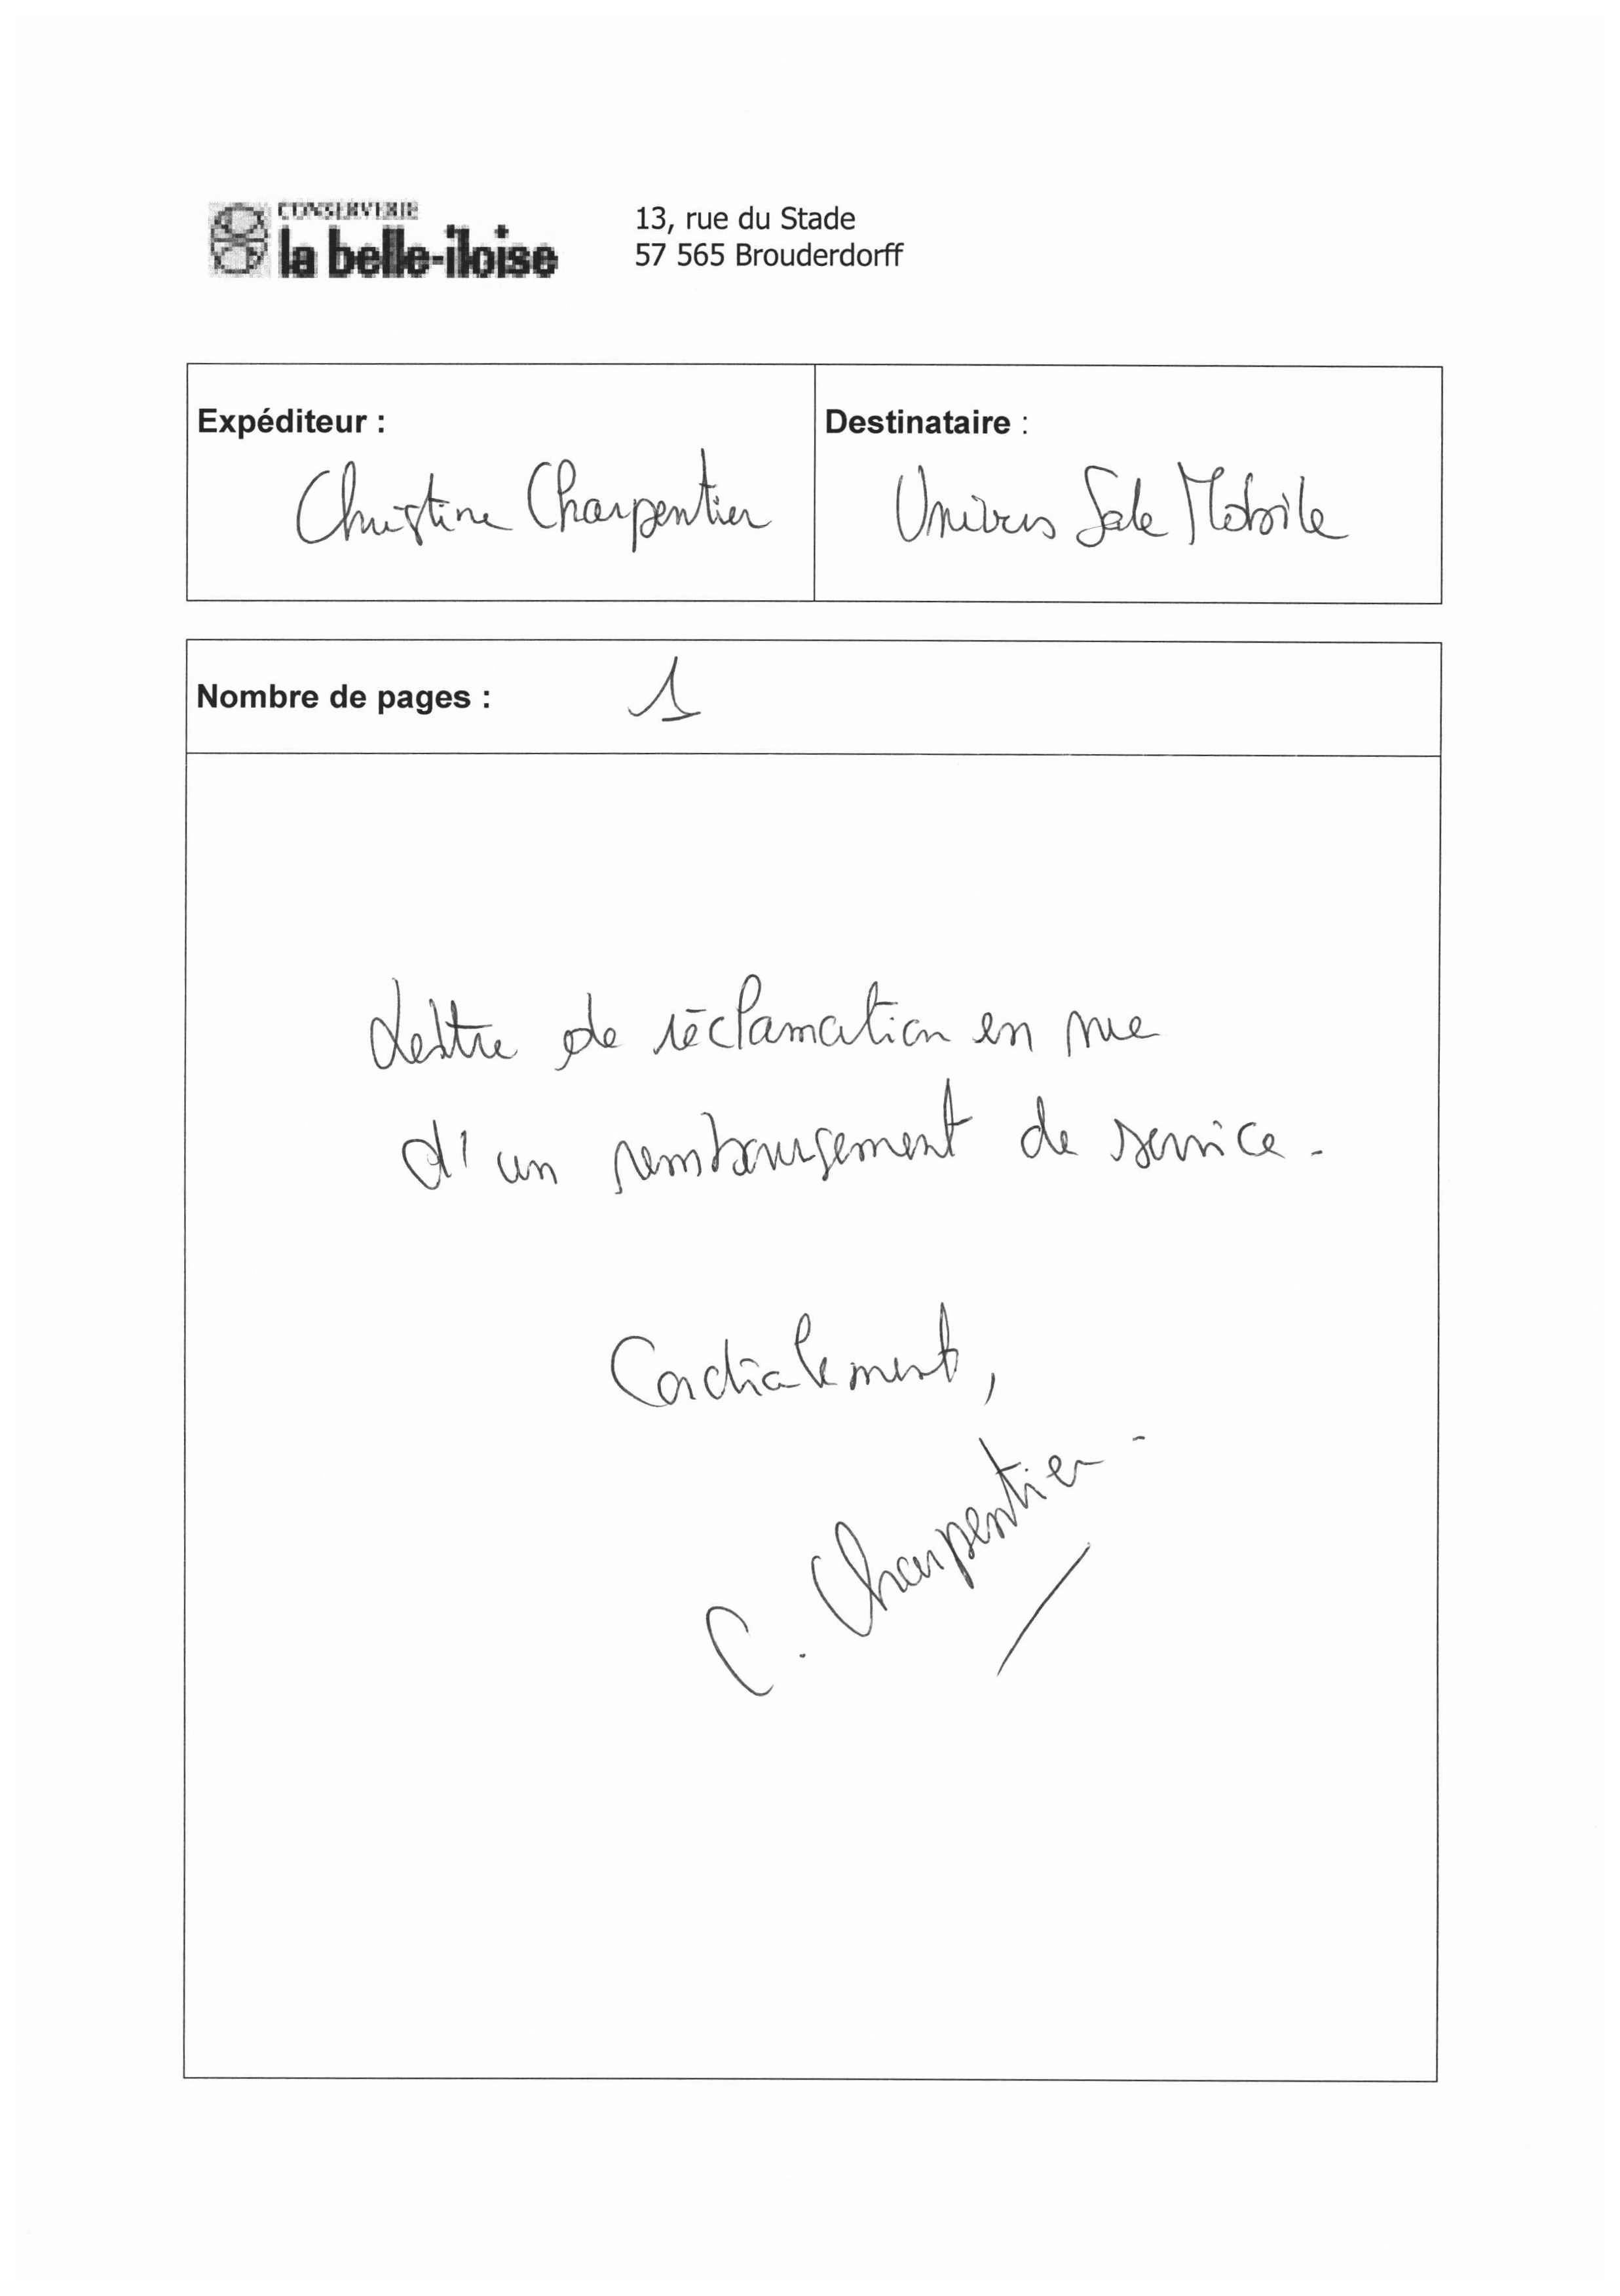 CONSERVERIE
la belle-iloise
13, rue du Stade
57 565 Brouderdorff
Expéditeur :
Christine Charpentier
Destinataire :
Univers Sale Mobile
Nombre de pages : 1
Lettre de réclamation en vue
d'un remboursement de service.
Cordialement,
C. Charpentier